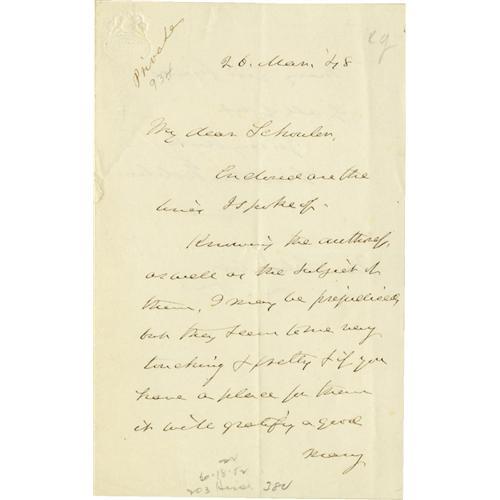 Private
934
eg
26. Mar. '48
My dear Schouler,
Enclosed are the
lines I spoke of.
Knowing the author of,
as well as the subject of
them, I may be prejudiced,
but they seem to me very
touching & pretty & if you
have a place for them
it will gratify a good
many
203 384